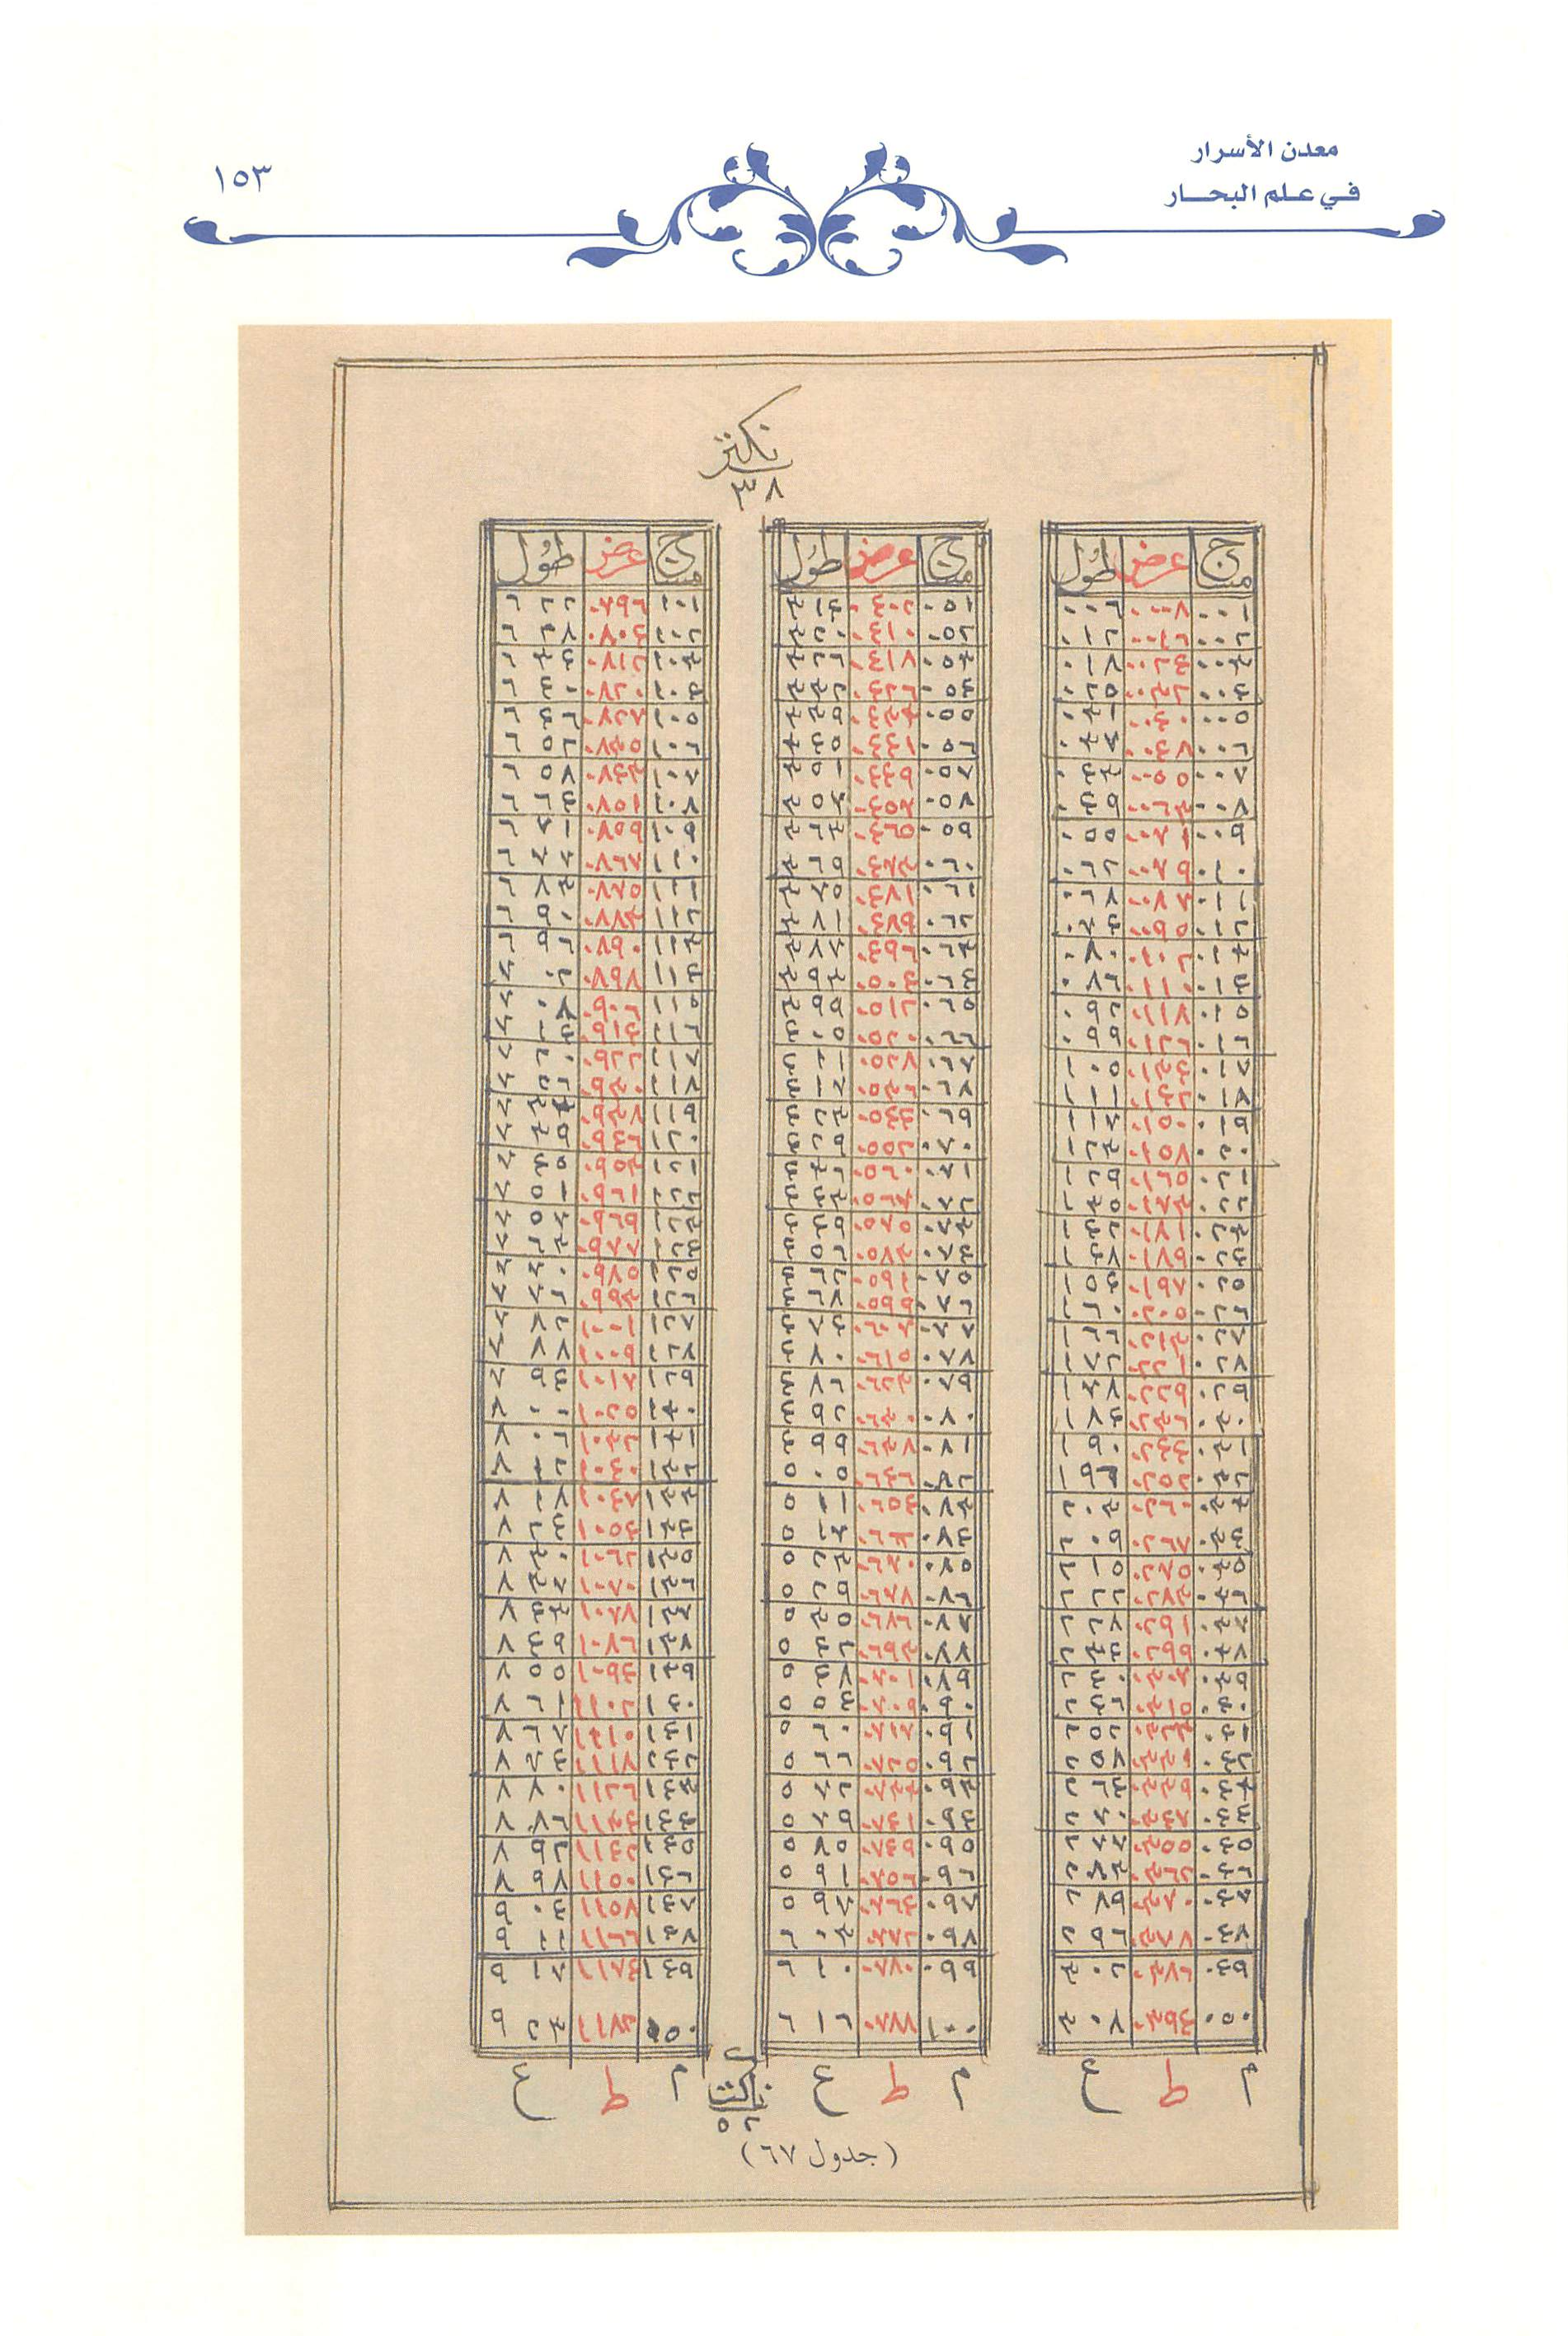 معدن الأسرار
في علم البحار
١٥٣
نكتز
٣٨
ميج عرض طول
٠٠١ ٠٠٠٨ ٠٠٦
٠٠٢ ٠٠١٦ ٠١٢
٠٠٣ ٠٠٢٤ ٠١٨
٠٠٤ ٠٠٣٢ ٠٢٥
٠٠٥ ٠٠٣٩ ٠٣١
٠٠٦ ٠٠٤٧ ٠٣٧
٠٠٧ ٠٠٥٥ ٠٤٣
٠٠٨ ٠٠٦٣ ٠٤٩
٠٠٩ ٠٠٧١ ٠٥٥
٠١٠ ٠٠٧٩ ٠٦٢
٠١١ ٠٠٨٧ ٠٦٨
٠١٢ ٠٠٩٥ ٠٧٤
٠١٣ ٠١٠٢ ٠٨٠
٠١٤ ٠١١٠ ٠٨٦
٠١٥ ٠١١٨ ٠٩٢
٠١٦ ٠١٢٦ ٠٩٩
٠١٧ ٠١٣٤ ١٠٥
٠١٨ ٠١٤٢ ١١١
٠١٩ ٠١٥٠ ١١٧
٠٢٠ ٠١٥٨ ١٢٣
٠٢١ ٠١٦٥ ١٢٩
٠٢٢ ٠١٧٣ ١٣٥
٠٢٣ ٠١٨١ ١٤٢
٠٢٤ ٠١٨٩ ١٤٨
٠٢٥ ٠١٩٧ ١٥٤
٠٢٦ ٠٢٠٥ ١٦٠
٠٢٧ ٠٢١٣ ١٦٦
٠٢٨ ٠٢٢١ ١٧٢
٠٢٩ ٠٢٢٩ ١٧٨
٠٣٠ ٠٢٣٦ ١٨٤
٠٣١ ٠٢٤٤ ١٩٠
٠٣٢ ٠٢٥٢ ١٩٦
٠٣٣ ٠٢٦٠ ٢٠٣
٠٣٤ ٠٢٦٨ ٢٠٩
٠٣٥ ٠٢٧٥ ٢١٥
٠٣٦ ٠٢٨٣ ٢٢٢
٠٣٧ ٠٢٩١ ٢٢٨
٠٣٨ ٠٢٩٩ ٢٣٤
٠٣٩ ٠٣٠٧ ٢٤٠
٠٤٠ ٠٣١٥ ٢٤٦
٠٤١ ٠٣٢٣ ٢٥٢
٠٤٢ ٠٣٣١ ٢٥٨
٠٤٣ ٠٣٣٩ ٢٦٤
٠٤٤ ٠٣٤٧ ٢٧٠
٠٤٥ ٠٣٥٥ ٢٧٧
٠٤٦ ٠٣٦٢ ٢٨٣
٠٤٧ ٠٣٧٠ ٢٨٩
٠٤٨ ٠٣٧٨ ٢٩٦
٠٤٩ ٠٣٨٦ ٣٠٢
٠٥٠ ٠٣٩٤ ٣٠٨
م ط ع
ميج عرض طول
٠٥١ ٠٤٠٢ ٣١٤
٠٥٢ ٠٤١٠ ٣٢٠
٠٥٣ ٠٤١٨ ٣٢٦
٠٥٤ ٠٤٢٦ ٣٣٢
٠٥٥ ٠٤٣٣ ٣٣٩
٠٥٦ ٠٤٤١ ٣٤٥
٠٥٧ ٠٤٤٩ ٣٥١
٠٥٨ ٠٤٥٧ ٣٥٧
٠٥٩ ٠٤٦٥ ٣٦٣
٠٦٠ ٠٤٧٣ ٣٦٩
٠٦١ ٠٤٨١ ٣٧٥
٠٦٢ ٠٤٨٩ ٣٨١
٠٦٣ ٠٤٩٦ ٣٨٧
٠٦٤ ٠٥٠٤ ٣٩٣
٠٦٥ ٠٥١٢ ٣٩٩
٠٦٦ ٠٥٢٠ ٤٠٥
٠٦٧ ٠٥٢٨ ٤١١
٠٦٨ ٠٥٣٦ ٤١٧
٠٦٩ ٠٥٤٤ ٤٢٣
٠٧٠ ٠٥٥٢ ٤٢٩
٠٧١ ٠٥٦٠ ٤٣٦
٠٧٢ ٠٥٦٧ ٤٤٣
٠٧٣ ٠٥٧٥ ٤٤٩
٠٧٤ ٠٥٨٣ ٤٥٦
٠٧٥ ٠٥٩١ ٤٦٢
٠٧٦ ٠٥٩٩ ٤٦٨
٠٧٧ ٠٦٠٧ ٤٧٤
٠٧٨ ٠٦١٥ ٤٨٠
٠٧٩ ٠٦٢٢ ٤٨٦
٠٨٠ ٠٦٣٠ ٤٩٢
٠٨١ ٠٦٣٨ ٤٩٩
٠٨٢ ٠٦٤٦ ٥٠٥
٠٨٣ ٠٦٥٤ ٥١١
٠٨٤ ٠٦٦٢ ٥١٧
٠٨٥ ٠٦٧٠ ٥٢٣
٠٨٦ ٠٦٧٨ ٥٢٩
٠٨٧ ٠٦٨٦ ٥٣٥
٠٨٨ ٠٦٩٣ ٥٤٢
٠٨٩ ٠٧٠١ ٥٤٨
٠٩٠ ٠٧٠٩ ٥٥٤
٠٩١ ٠٧١٧ ٥٦٠
٠٩٢ ٠٧٢٥ ٥٦٦
٠٩٣ ٠٧٣٣ ٥٧٢
٠٩٤ ٠٧٤١ ٥٧٩
٠٩٥ ٠٧٤٩ ٥٨٥
٠٩٦ ٠٧٥٦ ٥٩١
٠٩٧ ٠٧٦٤ ٥٩٧
٠٩٨ ٠٧٧٢ ٦٠٣
٠٩٩ ٠٧٨٠ ٦١٠
١٠٠ ٠٧٨٨ ٦١٦
م ط ع
ميج عرض طول
١٠١ ٠٧٩٦ ٦٢٢
١٠٢ ٠٨٠٤ ٦٢٨
١٠٣ ٠٨١٢ ٦٣٤
١٠٤ ٠٨٢٠ ٦٤٠
١٠٥ ٠٨٢٧ ٦٤٦
١٠٦ ٠٨٣٥ ٦٥٢
١٠٧ ٠٨٤٣ ٦٥٨
١٠٨ ٠٨٥١ ٦٦٤
١٠٩ ٠٨٥٩ ٦٧١
١١٠ ٠٨٦٧ ٦٧٧
١١١ ٠٨٧٥ ٦٨٣
١١٢ ٠٨٨٣ ٦٩٠
١١٣ ٠٨٩٠ ٦٩٦
١١٤ ٠٨٩٨ ٧٠٢
١١٥ ٠٩٠٦ ٧٠٨
١١٦ ٠٩١٤ ٧١٤
١١٧ ٠٩٢٢ ٧٢٠
١١٨ ٠٩٣٠ ٧٢٦
١١٩ ٠٩٣٨ ٧٣٣
١٢٠ ٠٩٤٦ ٧٣٩
١٢١ ٠٩٥٣ ٧٤٥
١٢٢ ٠٩٦١ ٧٥١
١٢٣ ٠٩٦٩ ٧٥٧
١٢٤ ٠٩٧٧ ٧٦٣
١٢٥ ٠٩٨٥ ٧٧٠
١٢٦ ٠٩٩٣ ٧٧٦
١٢٧ ١٠٠١ ٧٨٢
١٢٨ ١٠٠٩ ٧٨٨
١٢٩ ١٠١٧ ٧٩٤
١٣٠ ١٠٢٥ ٨٠٠
١٣١ ١٠٣٢ ٨٠٦
١٣٢ ١٠٤٠ ٨١٢
١٣٣ ١٠٤٨ ٨١٨
١٣٤ ١٠٥٤ ٨٢٤
١٣٥ ١٠٦٢ ٨٣٠
١٣٦ ١٠٧٠ ٨٣٧
١٣٧ ١٠٧٨ ٨٤٣
١٣٨ ١٠٨٦ ٨٤٩
١٣٩ ١٠٩٤ ٨٥٥
١٤٠ ١١٠٢ ٨٦١
١٤١ ١١١٠ ٨٦٧
١٤٢ ١١١٨ ٨٧٤
١٤٣ ١١٢٦ ٨٨٠
١٤٤ ١١٣٤ ٨٨٦
١٤٥ ١١٤٢ ٨٩٢
١٤٦ ١١٥٠ ٨٩٨
١٤٧ ١١٥٨ ٩٠٤
١٤٨ ١١٦٦ ٩١١
١٤٩ ١١٧٤ ٩١٧
١٥٠ ١١٨٢ ٩٢٣
م ط ع
٥٢
(جدول ٦٧)